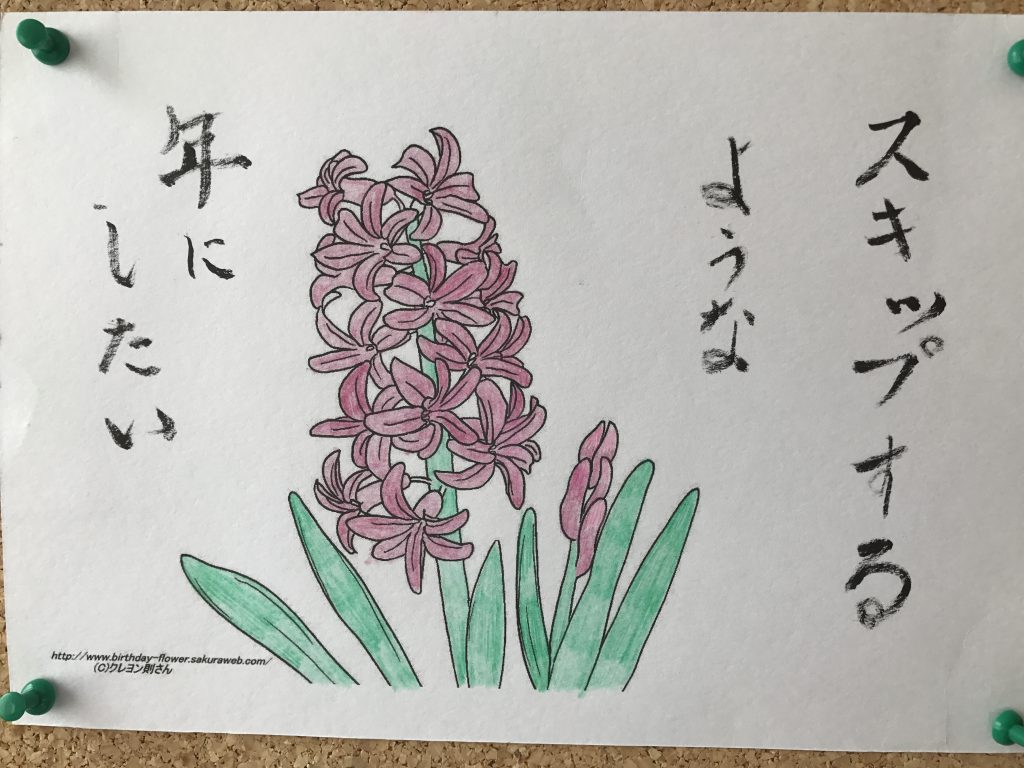 スキップする
ような
年に
したい
http://www.birthday-flower.sakuraweb.com/
(C)クレヨン則さん